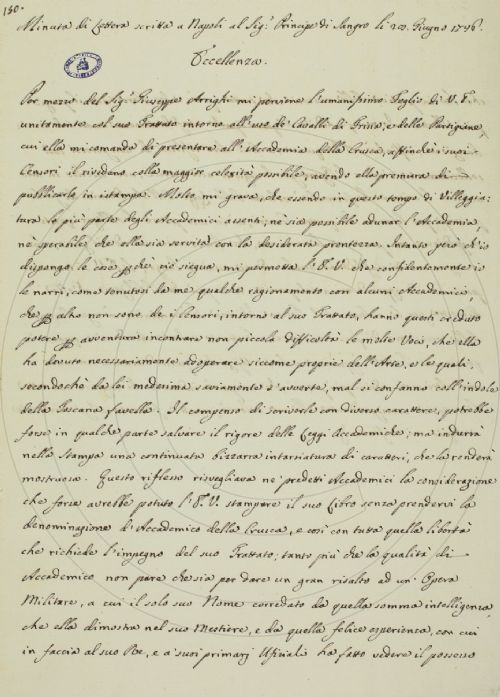 150.
Minuta di Lettera scritta a Napoli al Sig.r Principe di Sangro li 20. Giugno 1746.
Eccellenza.
Per mezzo del Sig.r Giuseppe Arrighi mi perviene l'umanissimo Foglio di V. E.
unitamente col suo Trattato intorno all'uso de' Cavalli di Frisia, e delle Partigiane,
cui ella mi comanda di presentare all'Accademia della Crusca, affinchè i suoi
Censori il rivedano colla maggior celerità possibile, avendo ella premura di
pubblicarlo in istampa. Molto mi grava, che essendo in questo tempo di Villeggia:
tura la più parte degli Accademici assenti, nè sia possibile adunar l'Accademia,
nè sperabile che ella sia servita con la desiderata prontezza. Intanto però ch'io
dispongo le cose perchè ciò siegua, mi permetta l'E. V. che confidentemente io
le narri, come tenutosi da me qualche ragionamento con alcuni Accademici,
che per altro non sono de i Censori, intorno al suo Trattato, hanno questi creduto
potere per avventura incontrare non piccola difficoltà le molte Voci, che ella
ha dovuto necessariamente adoperare siccome proprie dell'Arte, e le quali,
secondochè da lei medesima saviamente s'avverte, mal si confanno coll'indole
della Toscana favella. Il compenso di scriverle con diverso carattere, potrebbe
forse in qualche parte salvare il rigore delle Leggi Accademiche; ma indurrà
nella Stampa una continuata bizzarra intarsiatura di caratteri, che la renderà
mostruosa. Questo riflesso risvegliava ne' predetti Accademici la considerazione
che forse avrebbe potuto l'E. V. stampare il suo Libro senza prendervi la
denominazione d'Accademico della Crusca, e così con tutta quella libertà
che richiede l'impegno del suo Trattato; tanto più che la qualità di
Accademico non pare che sia per dare un gran risalto ad un'Opera
Militare, a cui il solo suo Nome corredato da quella somma intelligenza,
che ella dimostra nel suo Mestiere, e da quella felice esperienza, con cui
in faccia al suo Re, e a' suoi primarj Ufiziali ha fatto vedere il possesso